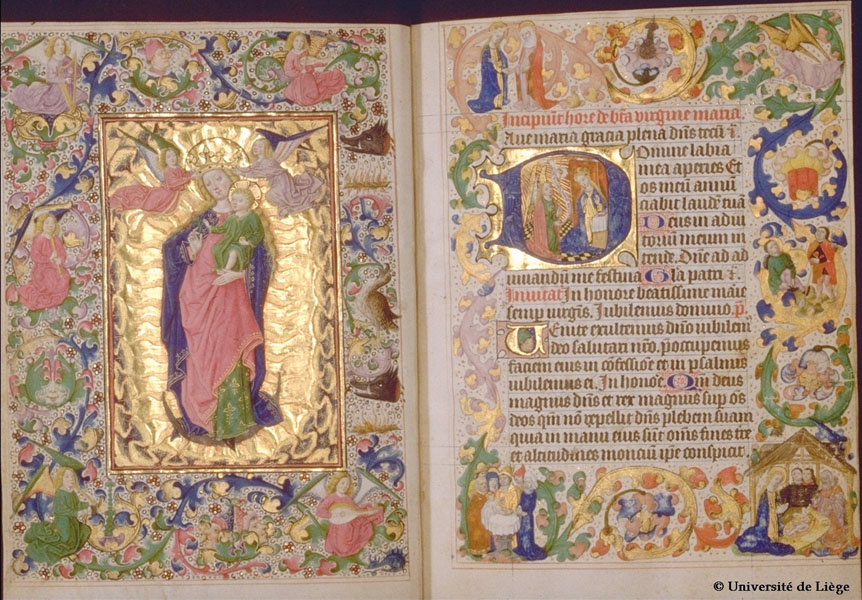 Incipiunt hore de bta virgine maria
Ave maria gracia plena dns tecu
Domine labia
mea aperies Et
os meu annu
ciabit laude tua
Deus in adiu
toriu meum in
tende. Dne ad ad
iuuandu me festina Gla patri
Inuitat In honore beatissime marie
semp virgis. Iubilemus domino. p
Venite exultemus dno iubilem
deo salutari nro. poccupemus
faciem eius in cofessioe et in psalmis
iubilemus ei. In honore Qm deus
magnus dns et rex magnus sup os
deos qm no repellit dns plebem suam
quia in manu eius sut oms fines tre
et altitudines monciu ipe conspicit.
© Université de Liège